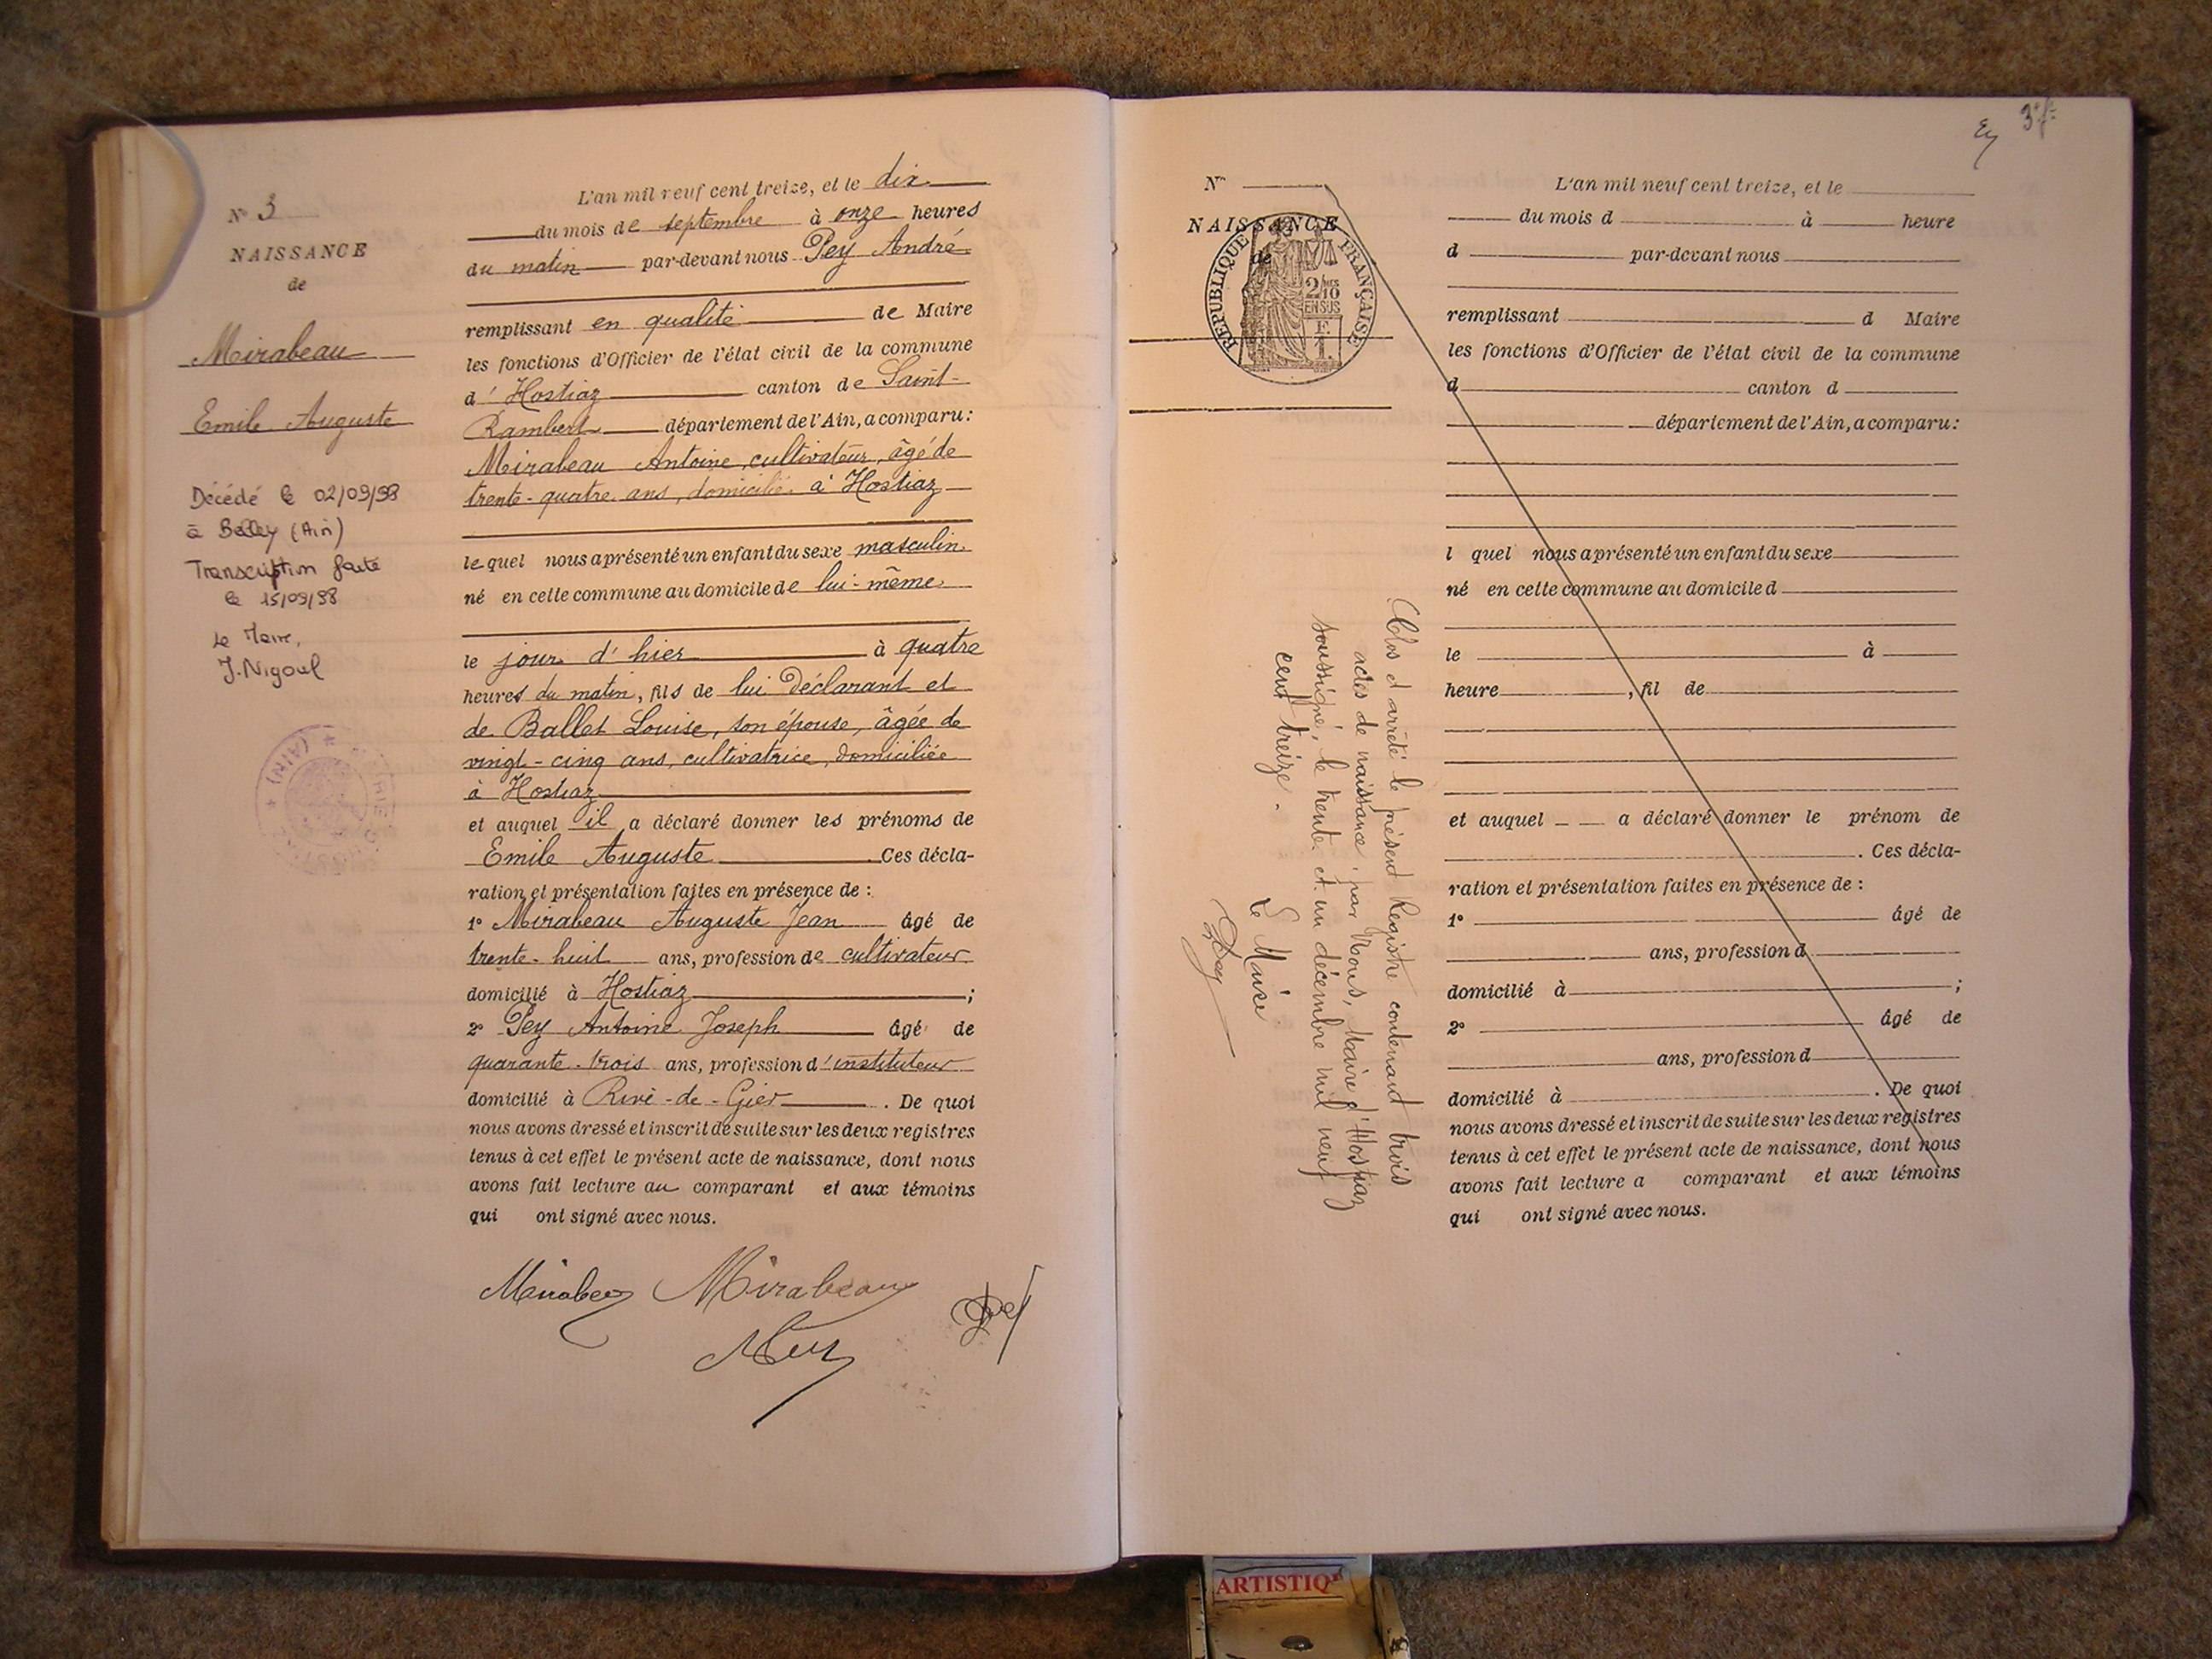 N° 3
NAISSANCE
de
Mirabeau
Emile Auguste
Décédé le 02/09/98
à Belley (Ain)
Transcription faite
le 15/09/98
Le Maire,
J. Nigoul
(AIN)
L'an mil neuf cent treize, et le dix
du mois de septembre à onze heures
du matin par-devant nous Pey André
remplissant en qualité de Maire
les fonctions d'Officier de l'état civil de la commune
d' Hostiaz canton de Saint-
Rambert département de l'Ain, a comparu :
Mirabeau Antoine, cultivateur, âgé de
trente-quatre ans, domicilié à Hostiaz
lequel nous a présenté un enfant du sexe masculin
né en cette commune au domicile de lui-même
le jour d'hier à quatre
heures du matin, fils de lui Déclarant et
de Ballet Louise, son épouse, âgée de
vingt-cinq ans, cultivatrice, domiciliée
à Hostiaz
et auquel il a déclaré donner les prénoms de
Emile Auguste Ces décla-
ration et présentation faites en présence de :
1° Mirabeau Auguste Jean âgé de
trente-huit ans, profession de cultivateur
domicilié à Hostiaz ;
2° Pey Antoine Joseph âgé de
quarante-trois ans, profession d'instituteur
domicilié à Rive-de-Gier . De quoi
nous avons dressé et inscrit de suite sur les deux registres
tenus à cet effet le présent acte de naissance, dont nous
avons fait lecture au comparant et aux témoins
qui ont signé avec nous.
Mirabeau Mirabeau
Pey
3e f.
N°
NAISSANCE
de
REPUBLIQUE FRANÇAISE
2/10
EN SUS
F.
1.
Clos et arrêté le présent Registre contenant trois
actes de naissance, par Nous, Maire d'Hostiaz
soussigné, le trente et un décembre mil neuf
cent treize.
Le Maire
Pey
L'an mil neuf cent treize, et le
du mois d à heure
d par-devant nous
remplissant d Maire
les fonctions d'Officier de l'état civil de la commune
d canton d
département de l'Ain, a comparu :
l quel nous a présenté un enfant du sexe
né en cette commune au domicile d
le à
heure , fil de
et auquel a déclaré donner le prénom de
. Ces décla-
ration et présentation faites en présence de :
1° âgé de
ans, profession d
domicilié à ;
2° âgé de
ans, profession d
domicilié à . De quoi
nous avons dressé et inscrit de suite sur les deux registres
tenus à cet effet le présent acte de naissance, dont nous
avons fait lecture a comparant et aux témoins
qui ont signé avec nous.
ARTISTIQ